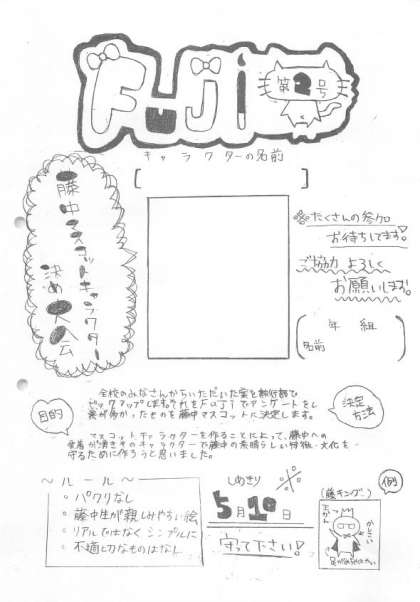 FUJi
第2号
キャラクターの名前
藤中マスコットキャラクター
決め大会
たくさんの参加
お待ちしてます!
ご協力よろしく
お願いします。
年 組
名前
全校のみなさんからいただいた案を執行部で
ピックアップします。それをFUJiでアンケートをし
票が多かったものを藤中マスコットに決定します。
決定
方法
目的
マスコットキャラクターを作ることによって、藤中への
愛着が湧き そのキャラクターで藤中の素晴らしい
文化を
守るために作ろうと思いました。
～ルール～
○パクリなし
○藤中生が親しみやすい絵
○リアルではなくシンプルに
○不適切なものはなし
しめきり
5月10日
守って下さい!
例
(藤キング)
王かん
かしこい